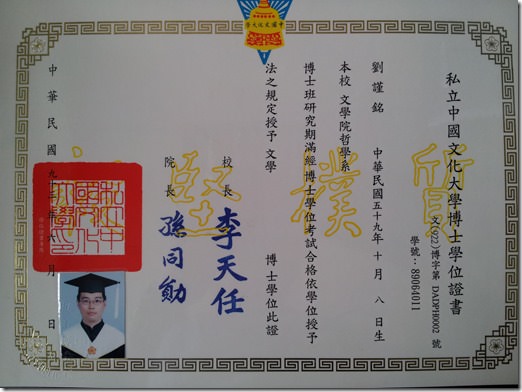 中國文化大學
私立中國文化大學博士學位證書
文(922)博字第 DADPH0002 號
學號:89064011
劉謹銘 中華民國五十九年十月八日生
本校 文學院哲學系
博士班研究期滿經博士學位考試合格依學位授予
法之規定授予 文學 博士學位此證
校長 李天任
院長 孫同勛
中華民國九十 年六月 日
質樸堅
私立中國文化大學印